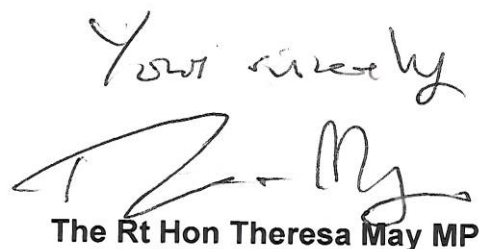 Yours sincerely
The Rt Hon Theresa May MP